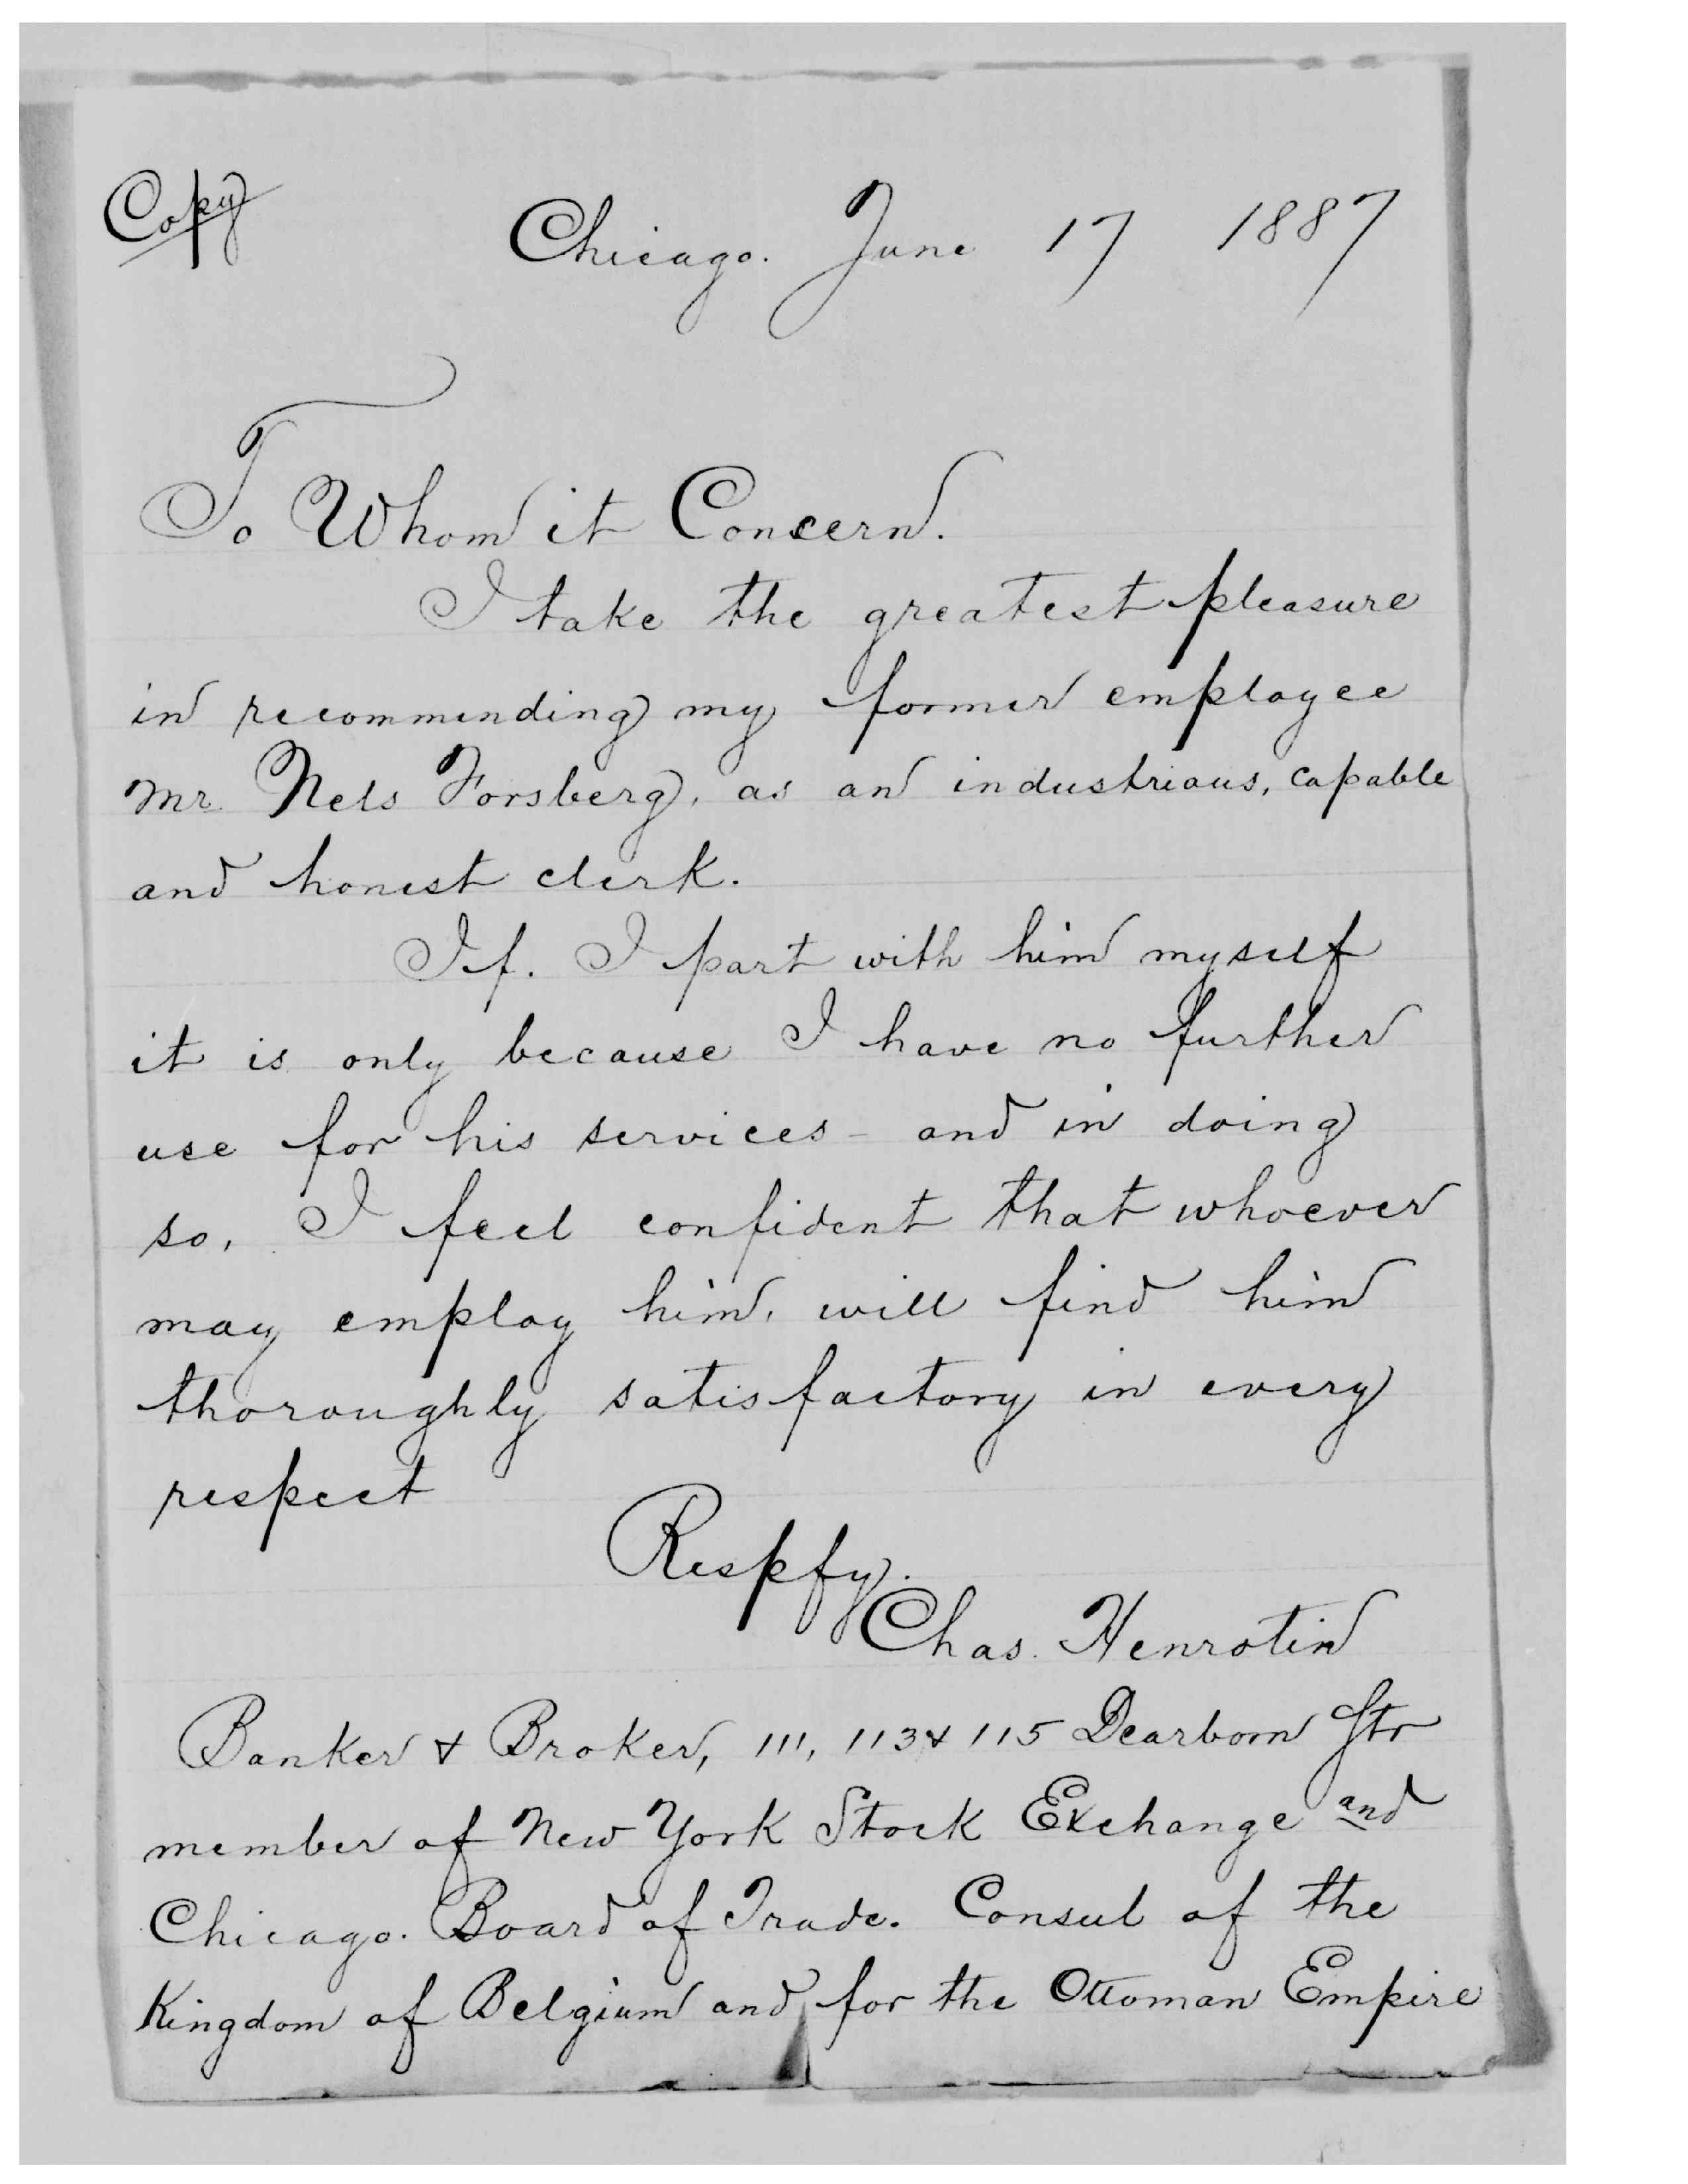 Copy
Chicago. June 17 1887
To Whom it Concern.
I take the greatest pleasure
in recommending my former employee
Mr. Nels Forsberg, as an industrious, capable
and honest clerk.
If. I part with him myself
it is only because I have no further
use for his services - and in doing
so, I feel confident that whoever
may employ him, will find him
thoroughly satisfactory in every
respect
Respfy.
Chas. Henrotin
Banker & Broker, 111, 113 & 115 Dearborn Str
member of New York Stock Exchange and
Chicago. Board of Trade. Consul of the
Kingdom of Belgium and for the Ottoman Empire